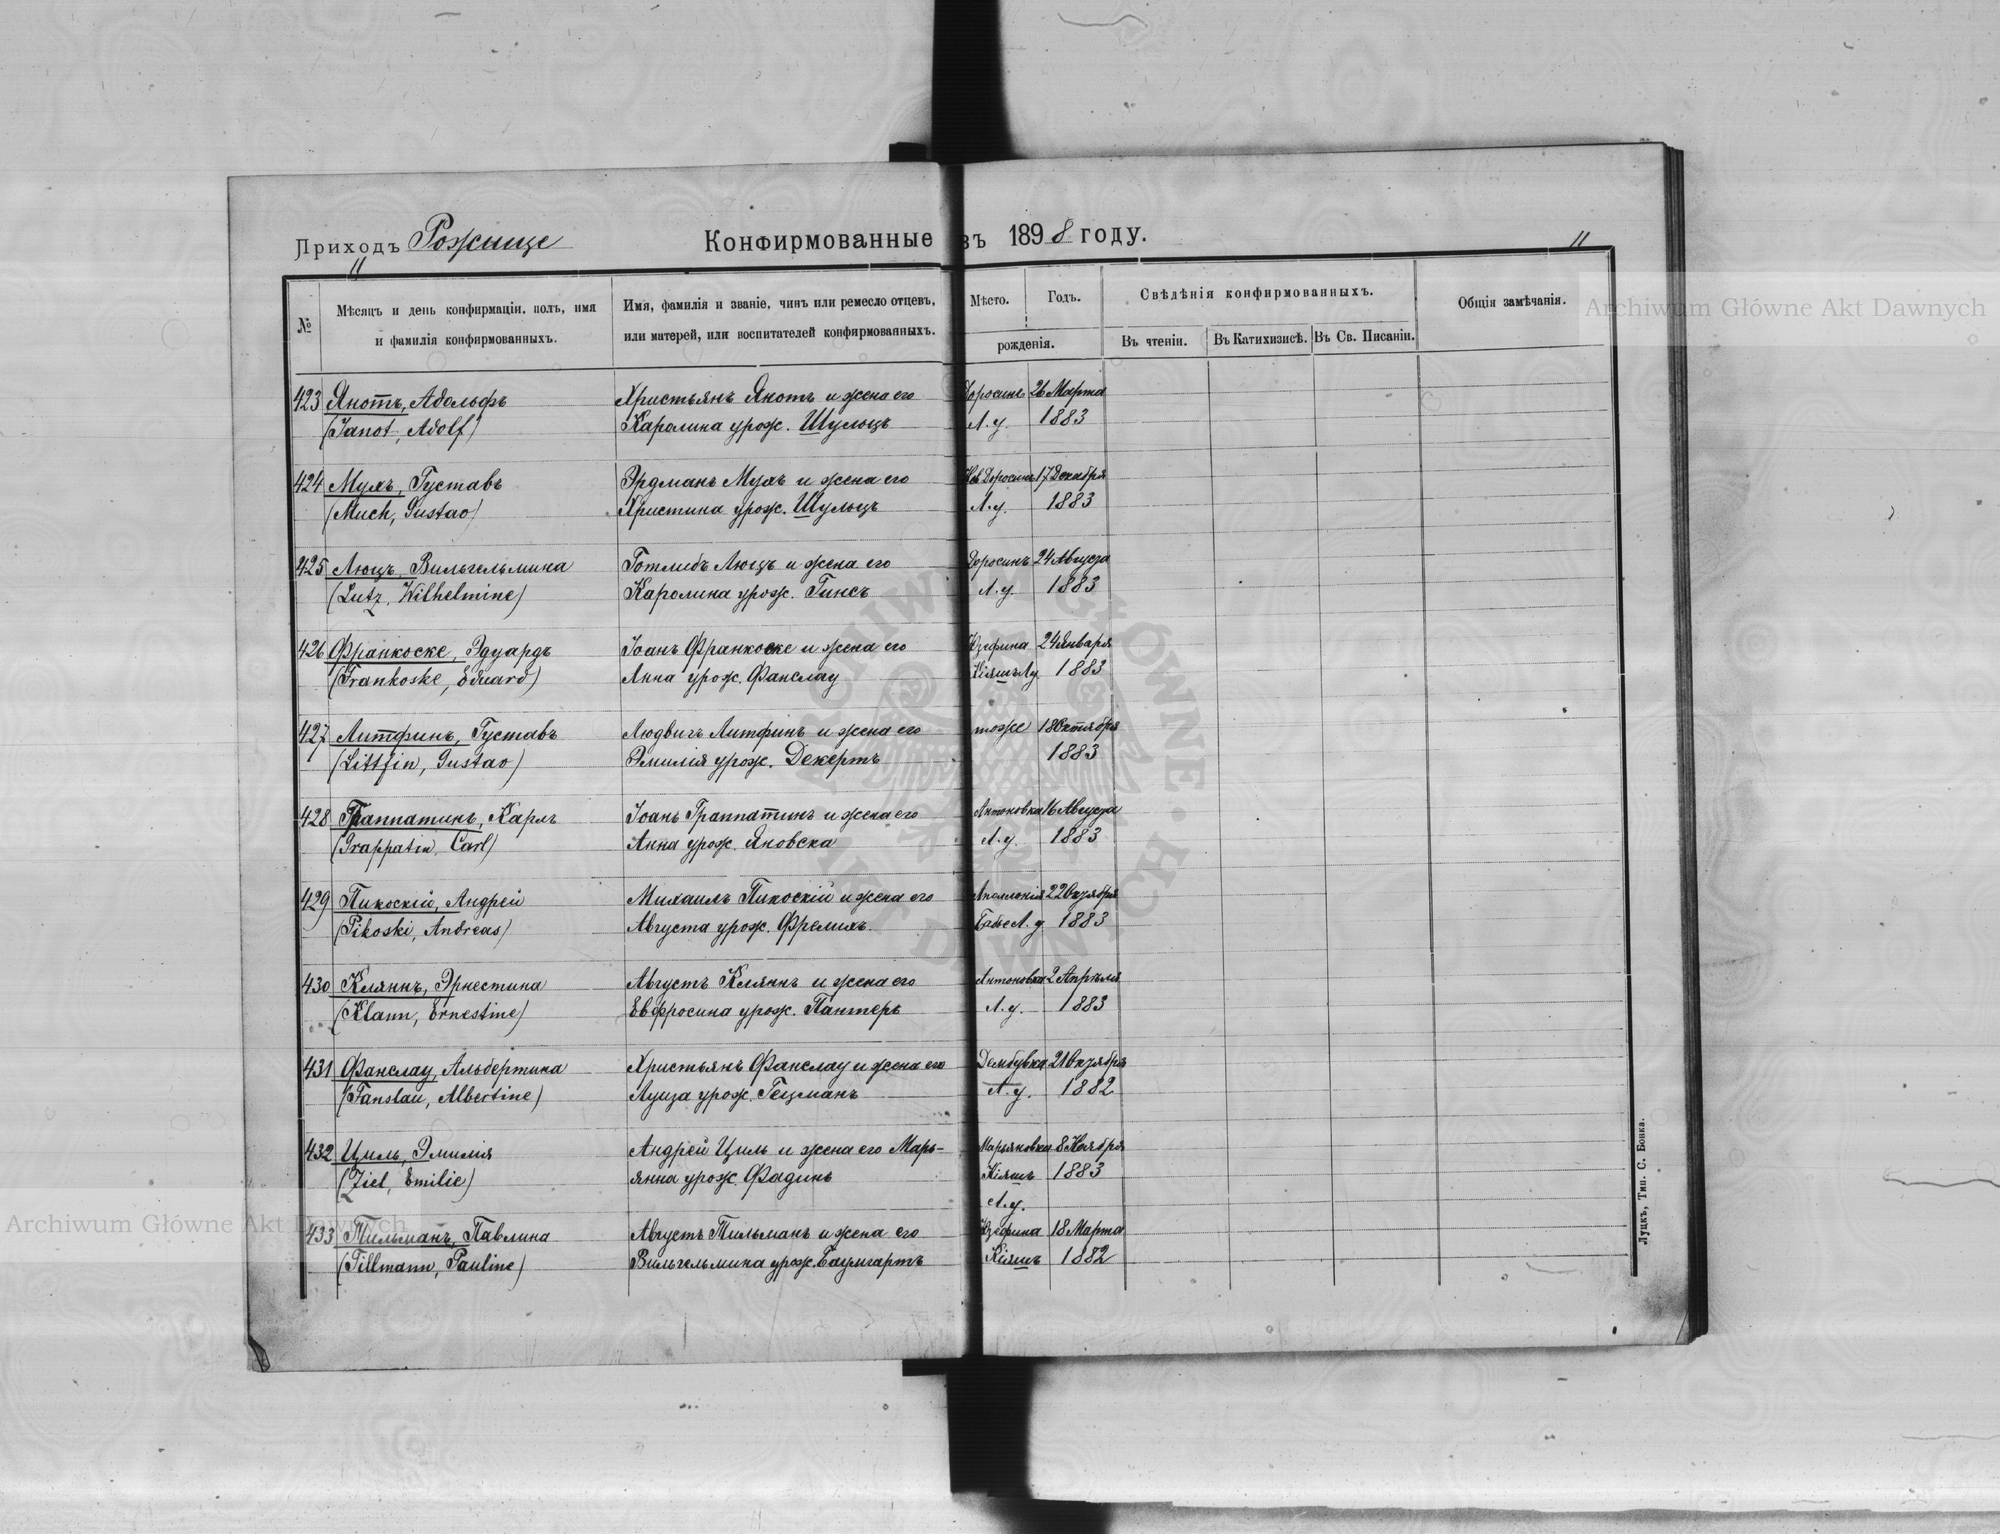 Приходъ Рожище Конфирмованные въ 1898 году.
11 11
№
Мѣсяцъ и день конфирмаціи, полъ, имя
и фамилія конфирмованныхъ.
Имя, фамилія и званіе, чинъ или ремесло отцевъ,
или матерей, или воспитателей конфирмованныхъ.
Мѣсто. Годъ.
рожденія.
Свѣдѣнія конфирмованныхъ.
Въ чтеніи. Въ Катихизисѣ. Въ Св. Писаніи.
Общія замѣчанія.
423 Янотъ, Адольфъ Христьянъ Янотъ и жена его Доросинъ 26 Марта
(Janot, Adolf) Каролина урож. Шульцъ Л. у. 1883
424 Мухъ, Густавъ Эрдманъ Мухъ и жена его Доросинъ 17 Декабря
(Much, Gustav) Христина урож. Шульцъ Л. у. 1883
425 Люцъ, Вильгельмина Готлибъ Люцъ и жена его Доросинъ 24 Августа
(Lutz, Wilhelmine) Каролина урож. Гинсъ Л. у. 1883
426 Франкоске, Эдуардъ Іоанъ Франкоске и жена его Юзефина 24 Января
(Frankoske, Eduard) Анна урож. Фанслау Кіяшъ Лу. 1883
427 Литфинъ, Густавъ Людвигъ Литфинъ и жена его тоже 18 Октября
(Littfin, Gustav) Эмилія урож. Декертъ 1883
428 Граппатинъ, Карлъ Іоанъ Граппатинъ и жена его Антоновка 16 Августа
(Grappatin, Carl) Анна урож. Яновска Л. у. 1883
429 Пикоскій, Андрей Михаилъ Пикоскій и жена его 22 Октября
(Pikoski, Andreas) Августа урож. Фрелихъ. Л. у. 1883
430 Кляннъ, Эрнестина Августъ Кляннъ и жена его Антоновка 2 Апрѣля
(Klann, Ernestine) Евфросина урож. Пантеръ Л. у. 1883
431 Фанслау, Альбертина Христьянъ Фанслау и жена его Дембувка 21 Октября
(Fanslau, Albertine) Луиза урож. Гецманъ Л. у. 1882
432 Циль, Эмилія Андрей Циль и жена его Марь- Марьяновка 8 Ноября
(Ziel, Emilie) янна урож. Фадинъ Кіяшъ 1883
Л. у.
433 Тильманъ, Павлина Августъ Тильманъ и жена его Юзефина 18 Марта
(Tillmann, Pauline) Вильгельмина урож. Баумгартъ Кіяшъ 1882
Луцкъ, Тип. С. Бонка.
Archiwum Główne Akt Dawnych
Archiwum Główne Akt Dawnych
ARCHIWUM GŁÓWNE AKT DAWNYCH